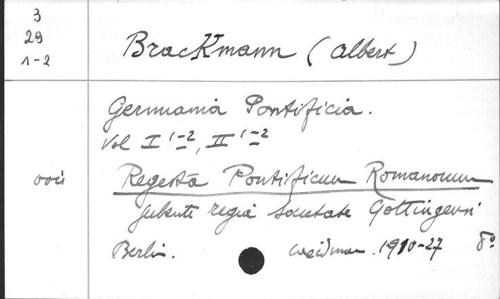 3
29
1-2
Brackmann (Albert)
Germania Pontificia.
Vol I 1-2, II 1-2
Regesta Pontificum Romanorum
jubente regia Societate Gottingensi
Berlin. Weidman. 1910-27 8º